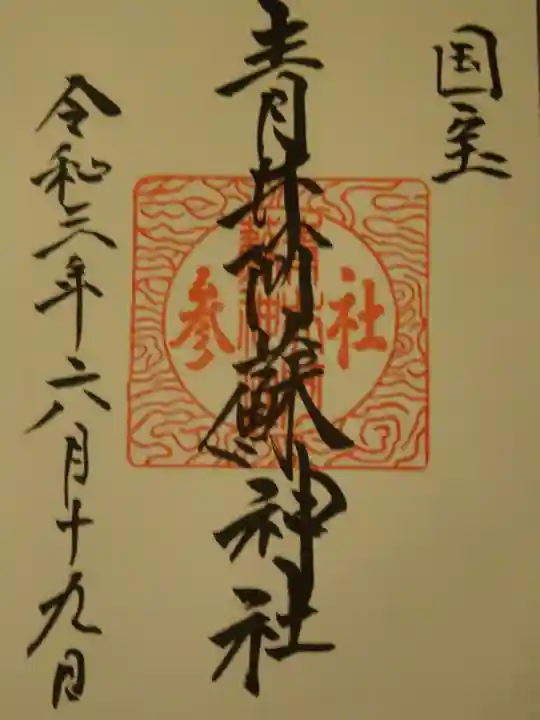 国宝
青井阿蘇神社
社参
令和三年六月十九日